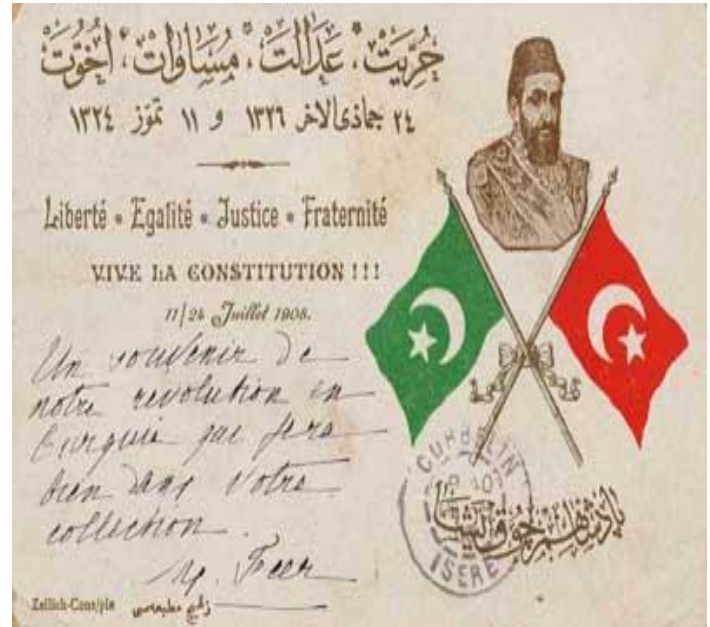 حُرِّيَت، عَدَالَت، مُسَاوَات، اُخُوَّت
٢٤ جماذى الاخر ١٣٢٦ و ١١ تموز ١٣٢٤
Liberté • Egalité • Justice • Fraternité
VIVE LA CONSTITUTION !!!
11/24 Juillet 1908.
Un souvenir de
notre revolution en
Turquie qui fera
bien dans votre
collection.
CURBELIN
ISÈRE
Zellich-Cons/ple زلیچ مطبعه‌سی